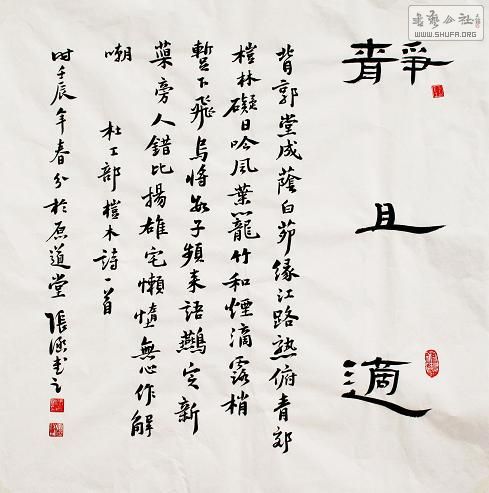 書藝公社
WWW.SHUFA.ORG
靜且適
背郭堂成蔭白茆緣江路熟俯青郊
榿林礙日吟風葉籠竹和煙滴露梢
暫下飛烏將数子頻来語鷰定新
巢旁人錯比揚雄宅懶惰無心作解
嘲
杜工部榿木詩一首
时壬辰年春分於原道堂 張書之